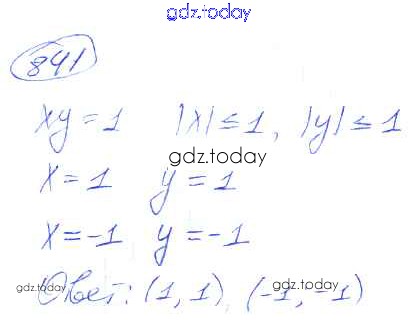 gdz.today
841
xy = 1 |x| ≤ 1, |y| ≤ 1
gdz.today
x = 1 y = 1
x = -1 y = -1
gdz.today gdz.today
Ответ: (1, 1), (-1, -1)
gdz.today